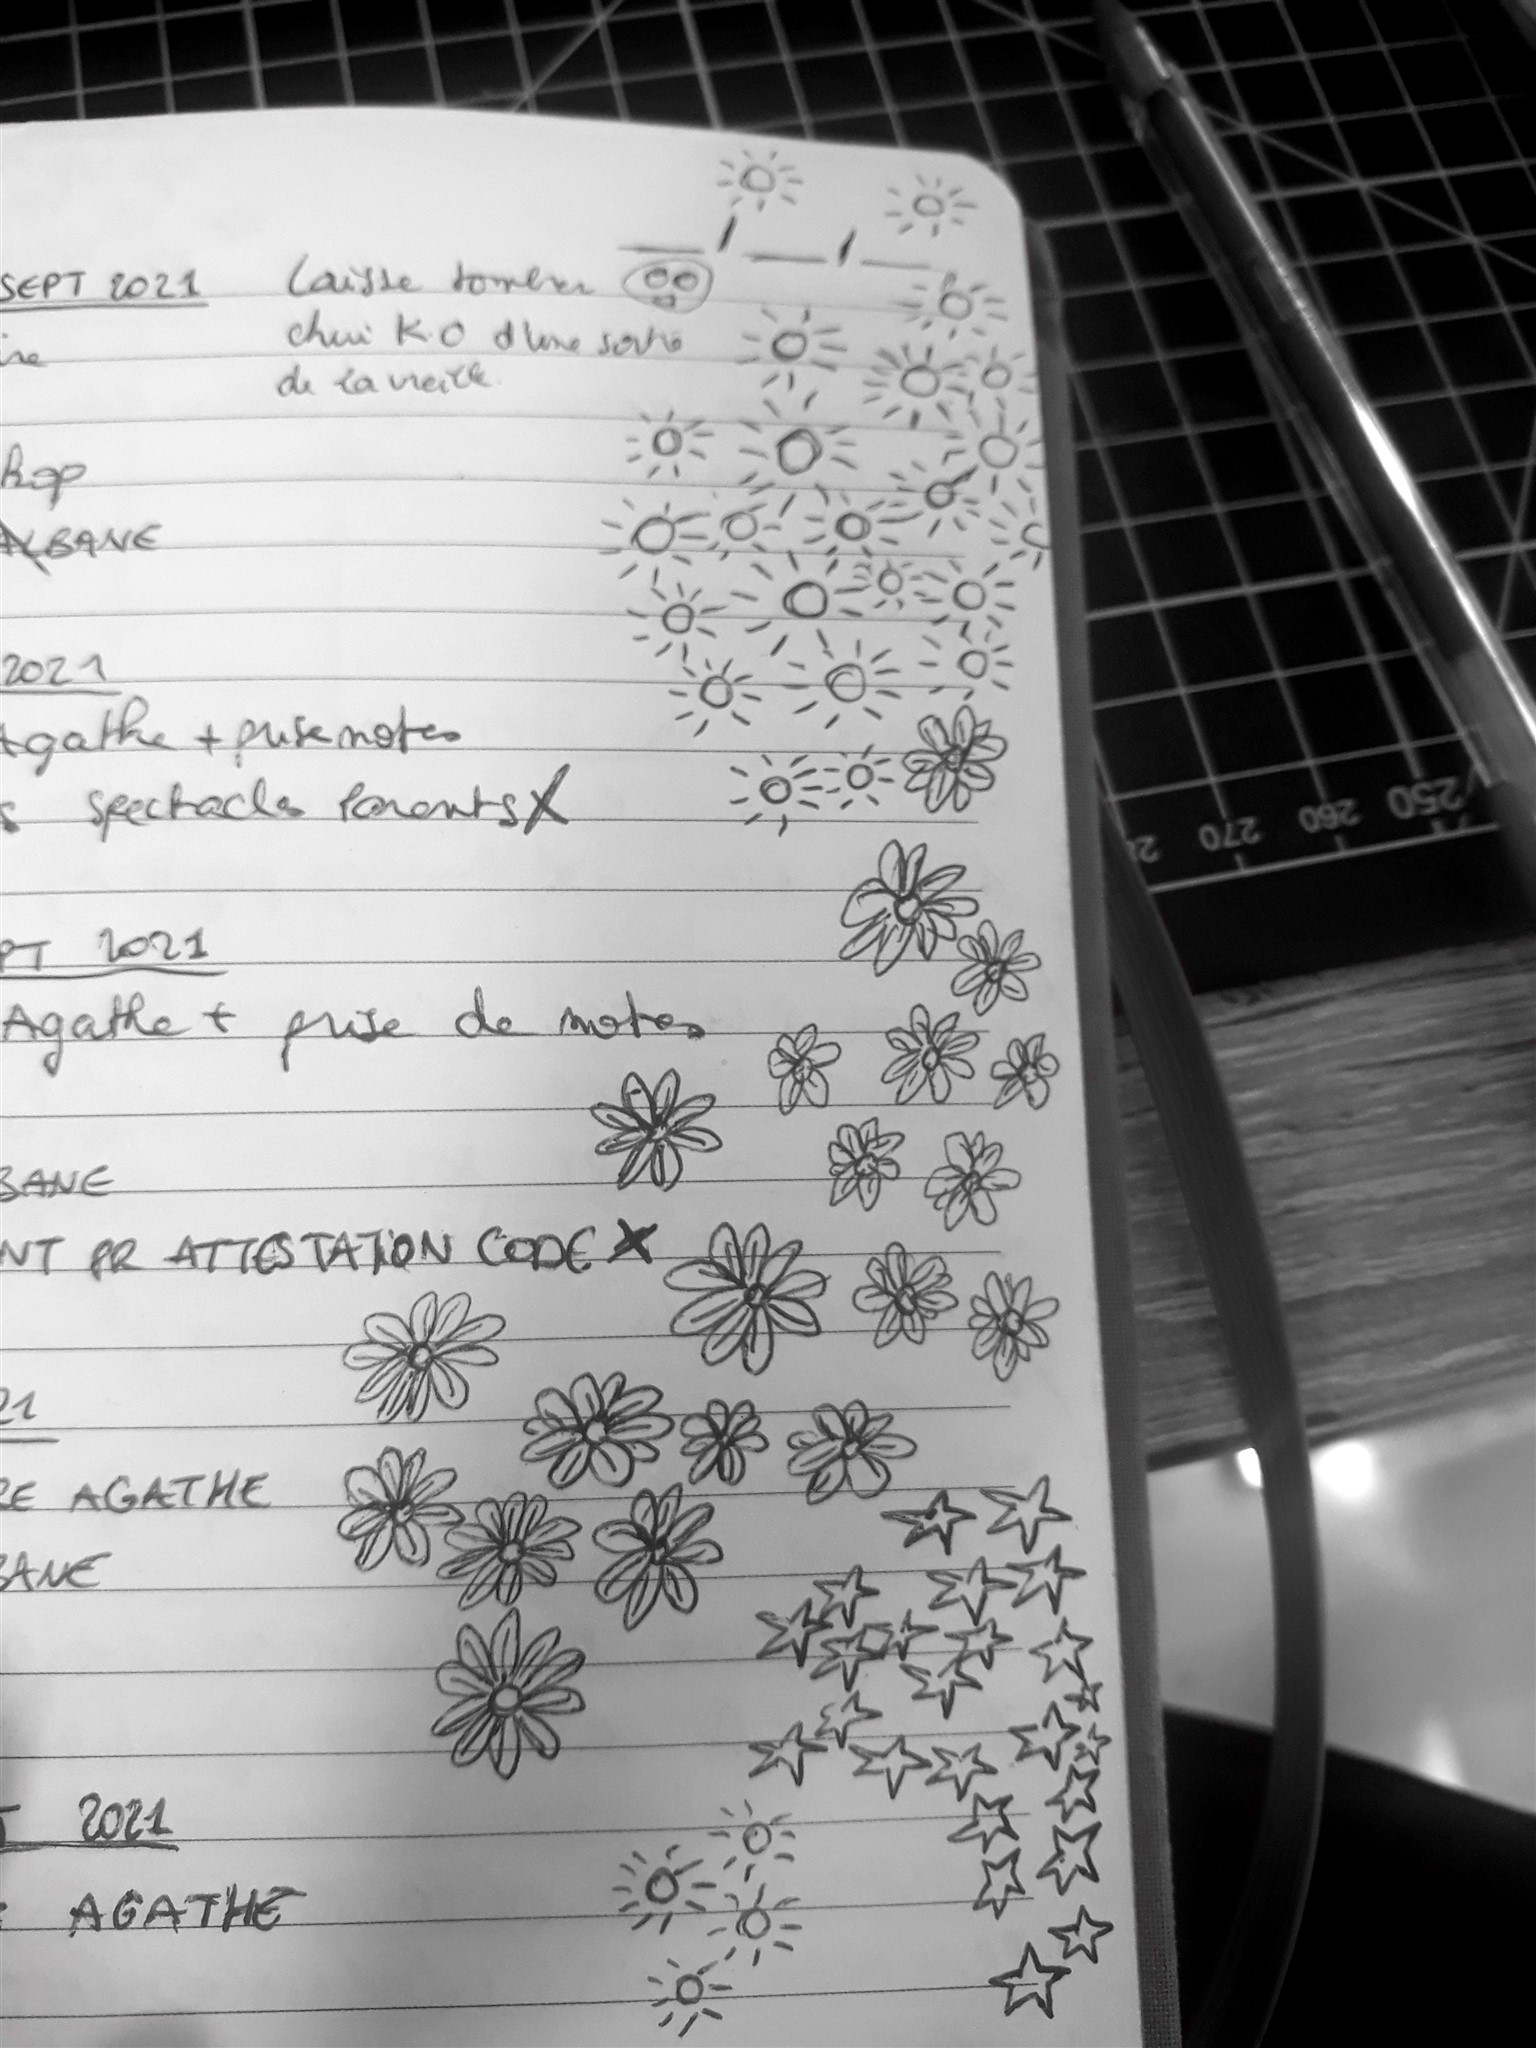 SEPT 2021 Laisse tomber
chui K.O d'une sortie
de la veille.
BANE
2021
Agathe + prise notes
spectacle Parents X
PT 2021
Agathe + prise de notes
BANE
NT PR ATTESTATION CODE X
21
RE AGATHE
BANE
T 2021
AGATHE
270 260 250